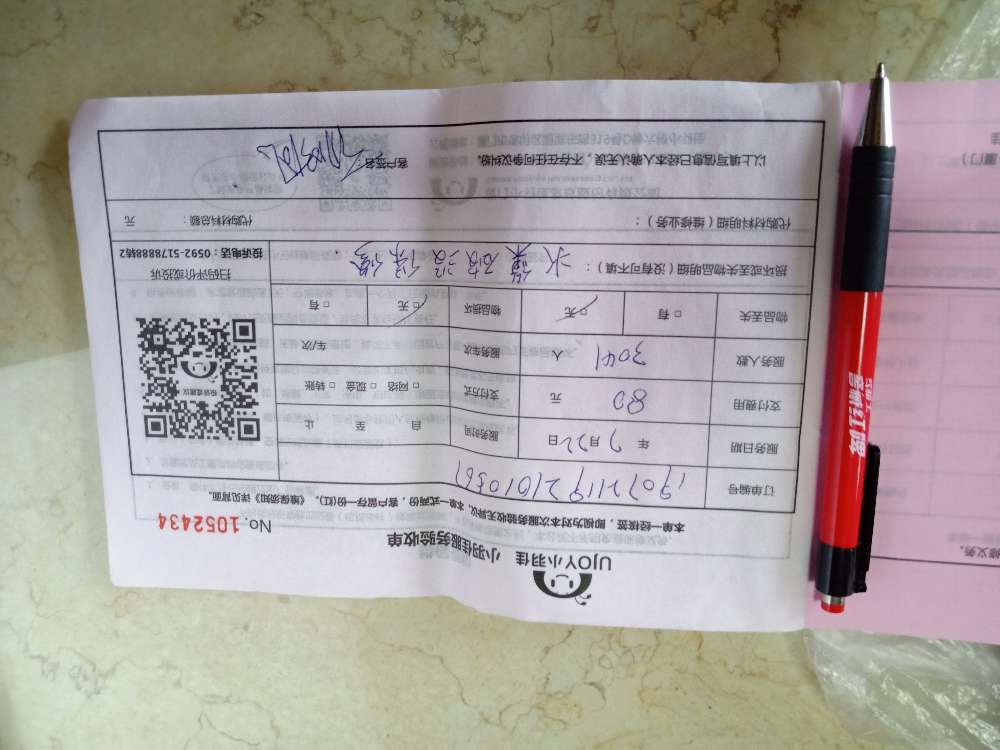 UJOY小羽佳 小羽佳服务验收单
No. 1052434
本单一经核签，即视为对本次服务验收无异议。本单一式两份，客户留存一份(红)，《维保须知》详见背面。
订单编号
服务日期 年 7月22日 服务时间 自 至 止
支付费用 80 元 支付方式 □网络 □现金 □转账
服务人数 3041 人 服务车次 车/次
物品丢失 □有 □无 物品损坏 □有 □无
扫码评价或投诉
投诉电话：0592-5178888转2
损坏或丢失物品明细（没有可不填）：
代购材料明细（维修业务）： 代购材料总额： 元
以上填写信息已经本人确认无误，不存在任何争议纠纷。 客户签名：